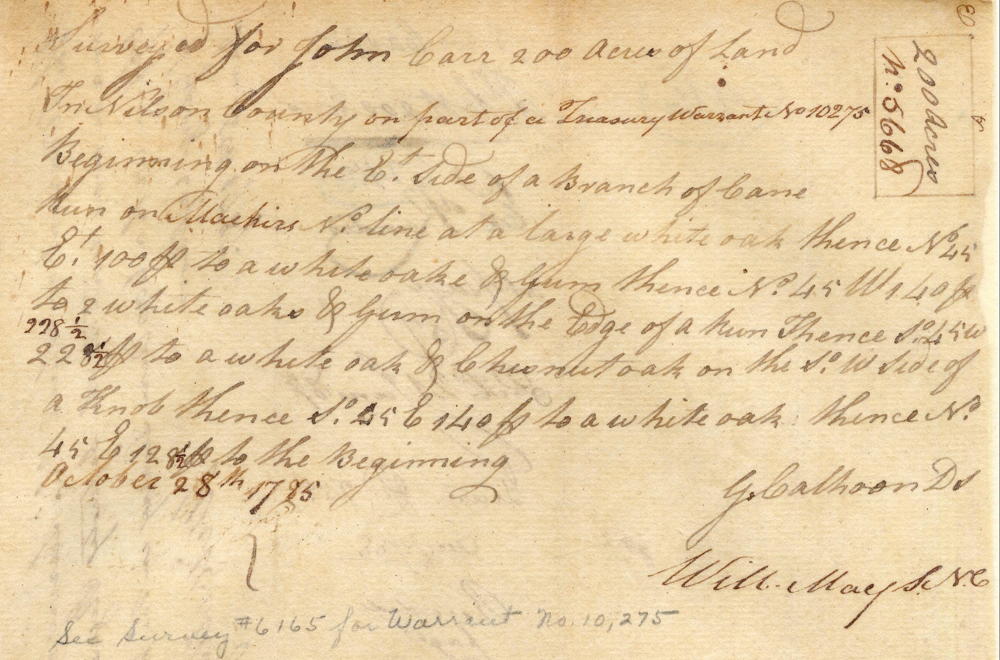 Surveyed for John Carr 200 Acres of Land
In Nilson County on part of a Treasury Warrant No 10275
Beginning on the Et. Side of a Branch of Cane
Run on Mackirs No. line at a large white oak thence No. 45
Et 100 ps to a white oake & Gum thence No. 45 W 140 ps
to 2 white oaks & Gum on the Edge of a Run Thence So. 45 W
228 1/2
228 1/2 ps to a white oak & Chesnut oak on the So. W Side of
a Knob thence So. 45 E 140 ps to a white oak thence No.
45 E 128 1/2 ps to the Beginning
October 28th 1785
G. Calhoon Ds
Will. May S.N.C
See Survey #6165 for Warrant No. 10,275
200 Acres
No. 5668